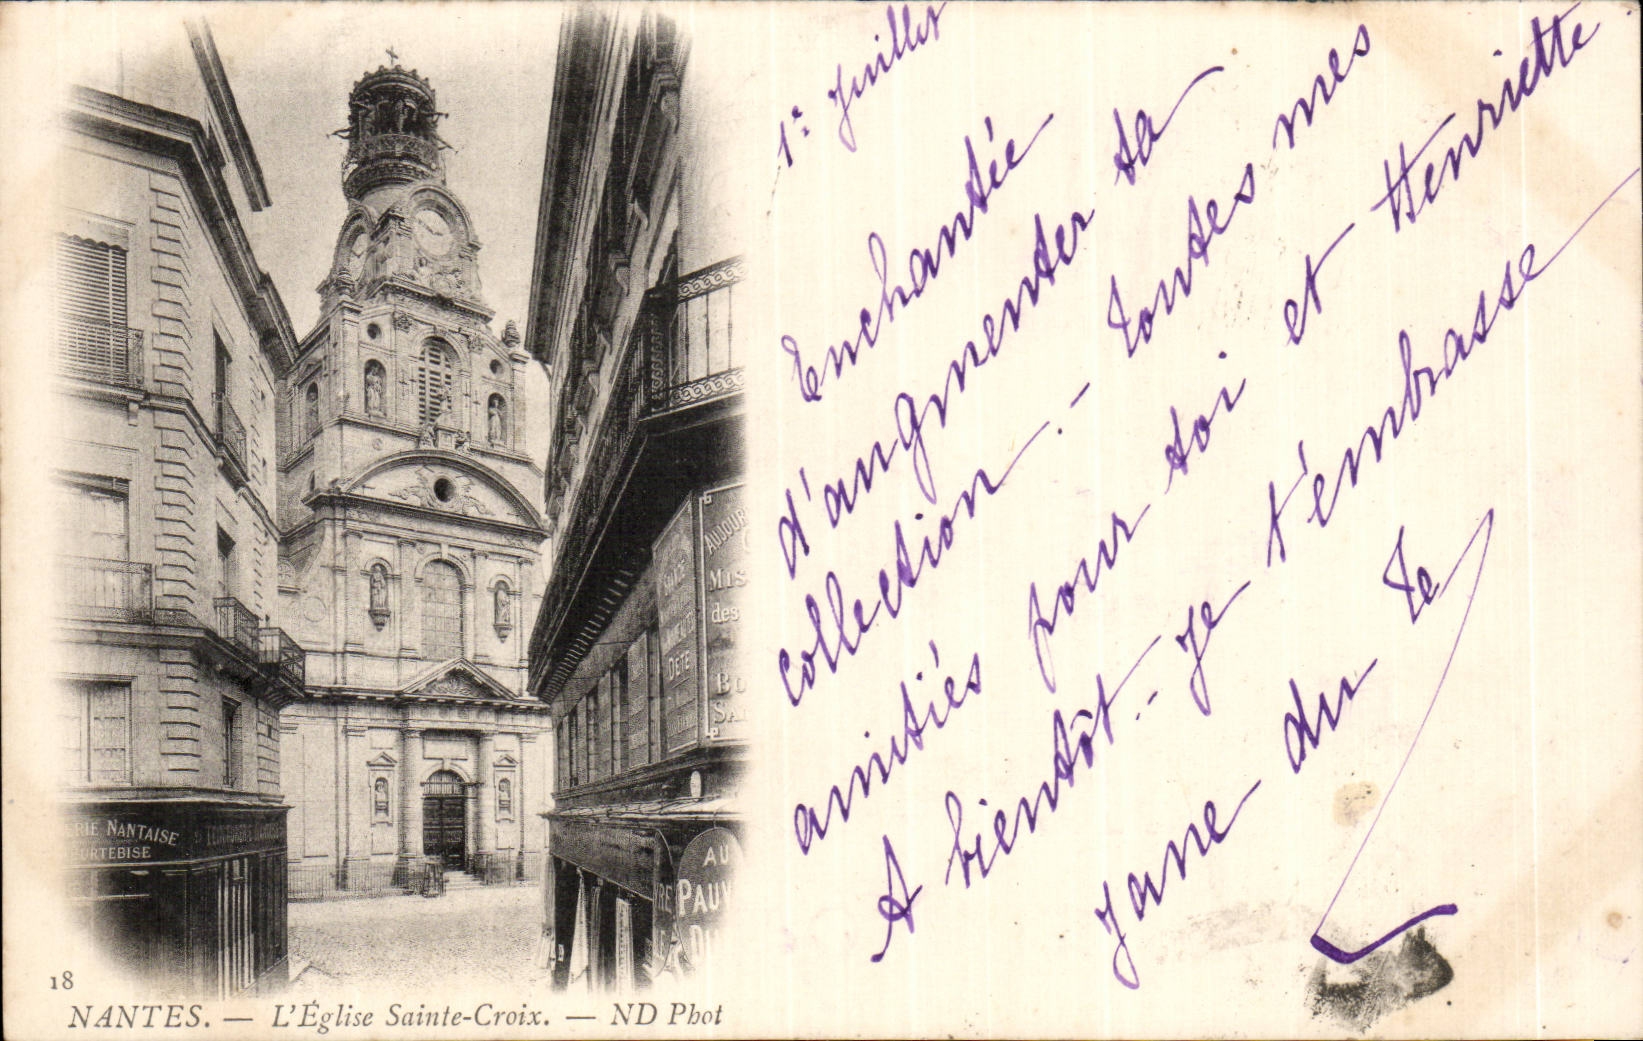 1er Juillet
Enchantée
d'augmenter ta
collection. - Toutes mes
amitiés pour toi et Henriette
A bientôt. - Je t'embrasse
Jane du Te
ERIE NANTAISE
URTEBISE
AUJOUR
MIS
des
BO
SA
D'ÉTÉ
AU
PAUV
DI
18
NANTES. — L'Église Sainte-Croix. — ND Phot